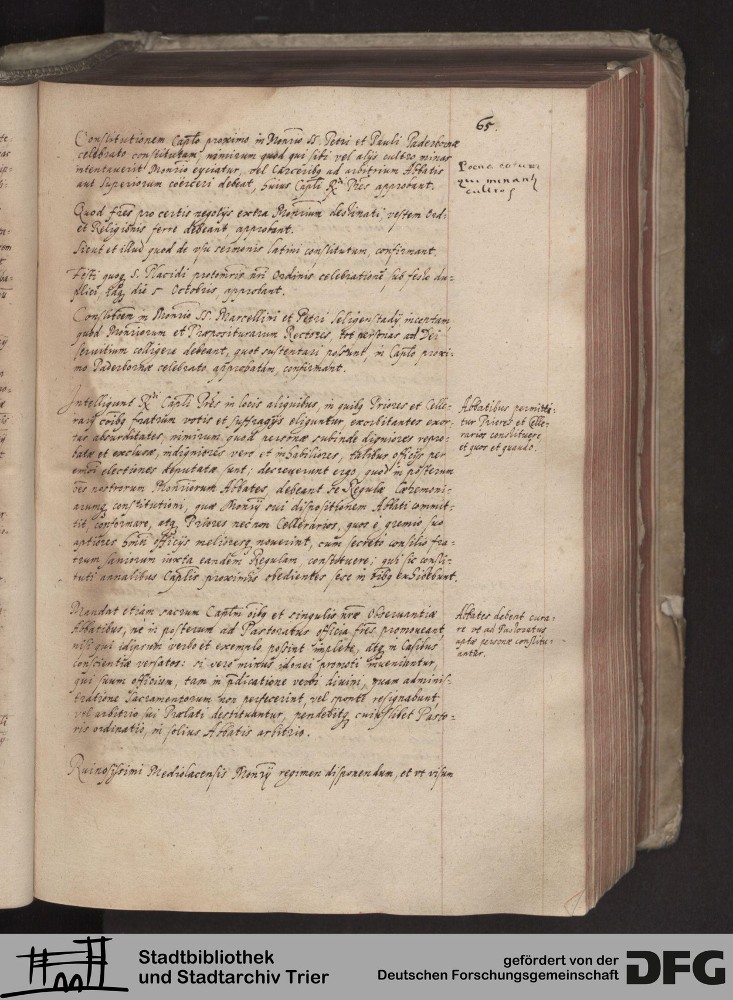 65.
Constitutionem Caplo proximo in Monrio SS. Petri et Pauli Paderbornæ
celebrato constitutam, nimirum quod qui sibi vel alijs cultro minas
intentauerit Monrio eyciatur, vel Carceribg ad arbitrium Abbatis
aut Superiorum coerceri debeat, huius Capli Rdi Pres approbant.
Poena eorum
qui minant
cultros
Quod fres pro certis negotijs extra Monrium destinati, vestem Ord:
et Religionis ferre debeant, approbant.
Sicut et illud quod de vsu sermonis latini constitutum, confirmant.
Festi quoq S. Placidi protomris nri Ordinis celebratione, sub festo du-
plici, die 5 Octobris approbant.
Constitoem in Monrio SS. Marcellini et Petri Seligenstadij inceptam
quod Monriorum et Præpositurarum Rectores, tot personas ad Dei
seruitium colligere debeant, quot sustentari possunt, in Caplo proxi-
mo Paderbornæ celebrato approbatam, confirmant.
Intelligunt Rdi Capli Pres in locis aliquibus, in quibg Priores et Celle-
rarij oibg fratrum votis et suffragijs eliguntur, exorbitantes exor-
tas absurditates, nimirum quod personæ subinde digniores repro-
batæ et exclusæ, indigniores vero et inhabiliores, talibus officijs per
electiones deputatæ sunt, decreuerunt ergo, quod in posterum
oes nostrorum Monriorum Abbates, debeant se Regulæ Cæremoni-
arumq constitutioni, quæ Monrij sui dispositionem Abbati commit-
tit, conformare, atq Priores necnon Cellerarios, quos è gremio suo
aptiores officijs melioresq nouerint, cum secreto consilio fra-
trum saniorum iuxta eandem Regulam constituere; qui sic consti-
tuti annalibus Caplis proximis obedientes sese in oibg exhibebunt.
Abbatibus permitti-
tur Priores et Celle-
rarios constituere,
et quos et quando.
Mandat etiam sacrum Caplm oibg et singulis nræ Obseruantiæ
Abbatibus, ne in posterum ad Pastoratus officia fres promoueant,
nisi qui idipsum verbo et exemplo possint implere, atq in Casibus
conscientiæ versatos: si vero minus idonei promoti inueniantur,
qui suum officium, tam in prædicatione verbi diuini, quam adminis-
tratione Sacramentorum non perfecerint, vel sponte resignabunt,
vel arbitrio sui Prælati destituantur, pendebitq cuiuslibet Pasto-
ris ordinatio, in solius Abbatis arbitrio.
Abbates debent cura-
re vt ad Pastoratus
aptæ personæ constitu-
antur.
Ruinosissimi Mediolacensis Monrij regimen disponendum, et vt visum
Stadtbibliothek
und Stadtarchiv Trier
gefördert von der
Deutschen Forschungsgemeinschaft
DFG